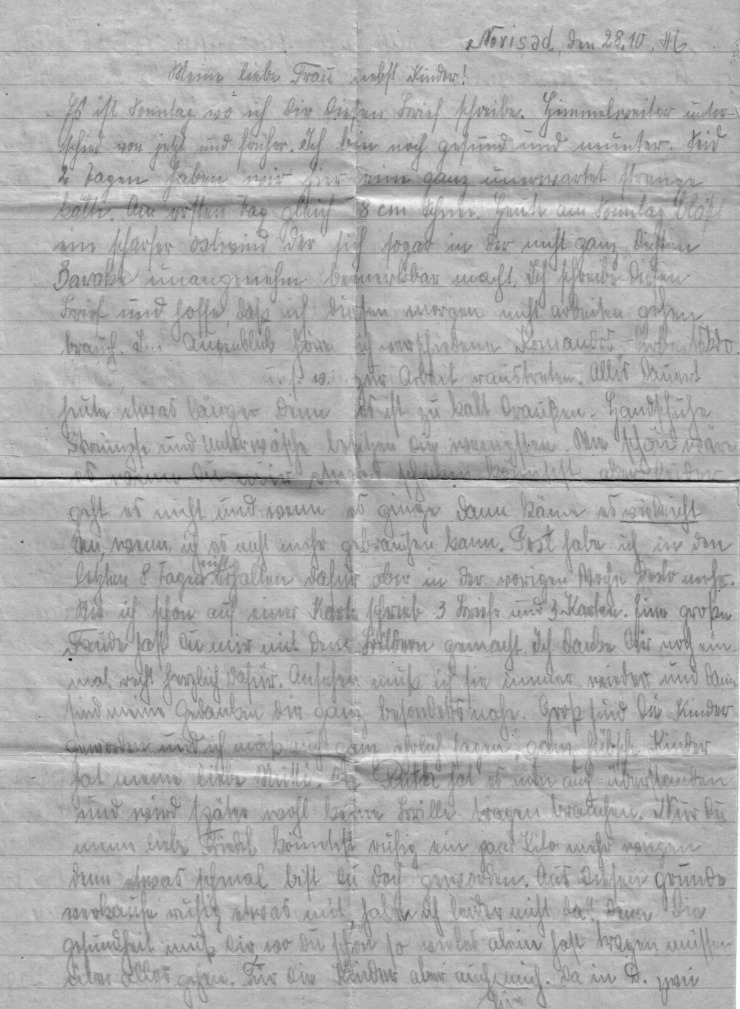 Novisad, den 28.10.46
Meine liebe Frau nebst Kinder!
Es ist Sonntag wo ich Dir diesen Brief schreibe. Himmelweiter unter-
schied von jetzt und früher. Ich bin noch gesund und munter. Seid
2 Tagen haben wir hier eine ganz unerwartet strenge
Kälte. Am ersten Tag gleich 8 cm Schnee. Heute am Sonntag bläst
ein scharfer Ostwind der sich sogar in der nicht ganz dichten
Baracke unangenehm bemerkbar macht. Ich schreibe diesen
Brief und hoffe, daß ich diesen morgen nicht arbeiten gehen
brauch. Im Augenblick höre ich verschiedene Komandos
u.s.w. zur Arbeit raustreten. Alles dauert
heute etwas länger denn es ist zu kalt draußen. Handschuhe
Strümpfe und Unterwäsche besitzen die wenigsten. Wie schön wäre
es wenn Du etwas schicken könntest aber leider
geht es nicht und wenn es ginge dann käme es vieleicht
an, wenn ich es nicht mehr gebrauchen kann. Post habe ich in den
letzten 8 Tagen nicht erhalten dafür aber in der vorigen Woche desto mehr.
Wie ich schon auf einer Karte schrieb 3 Briefe und 3 Karten. Eine große
Freude hast Du mir mit den Bildern gemacht. Ich danke Dir noch ein-
mal recht herzlich dafür. Ansehen muß ich sie immer wieder und dann
sind meine Gedanken Dir ganz besonders nahe. Groß sind die Kinder
geworden und ich muß auch ganz ehrlich sagen, ganz hübsche Kinder
hat meine liebe Mutti. Die hat es nun auch überstanden
und wird später wohl keine Brille tragen brauchen. Nur Du
meine liebe Friedl könntest ruhig ein paar Kilo mehr wiegen
denn etwas schmal bist Du doch geworden. Aus diesem grunde
verkaufe ruhig etwas mit, habe ich leider nicht da". Denn Die
gesundheit muß Dir wo Du schon so vieles alein hast tragen müssen
über alles gehen. Für die Kinder aber auch mich. Da in D. zwei